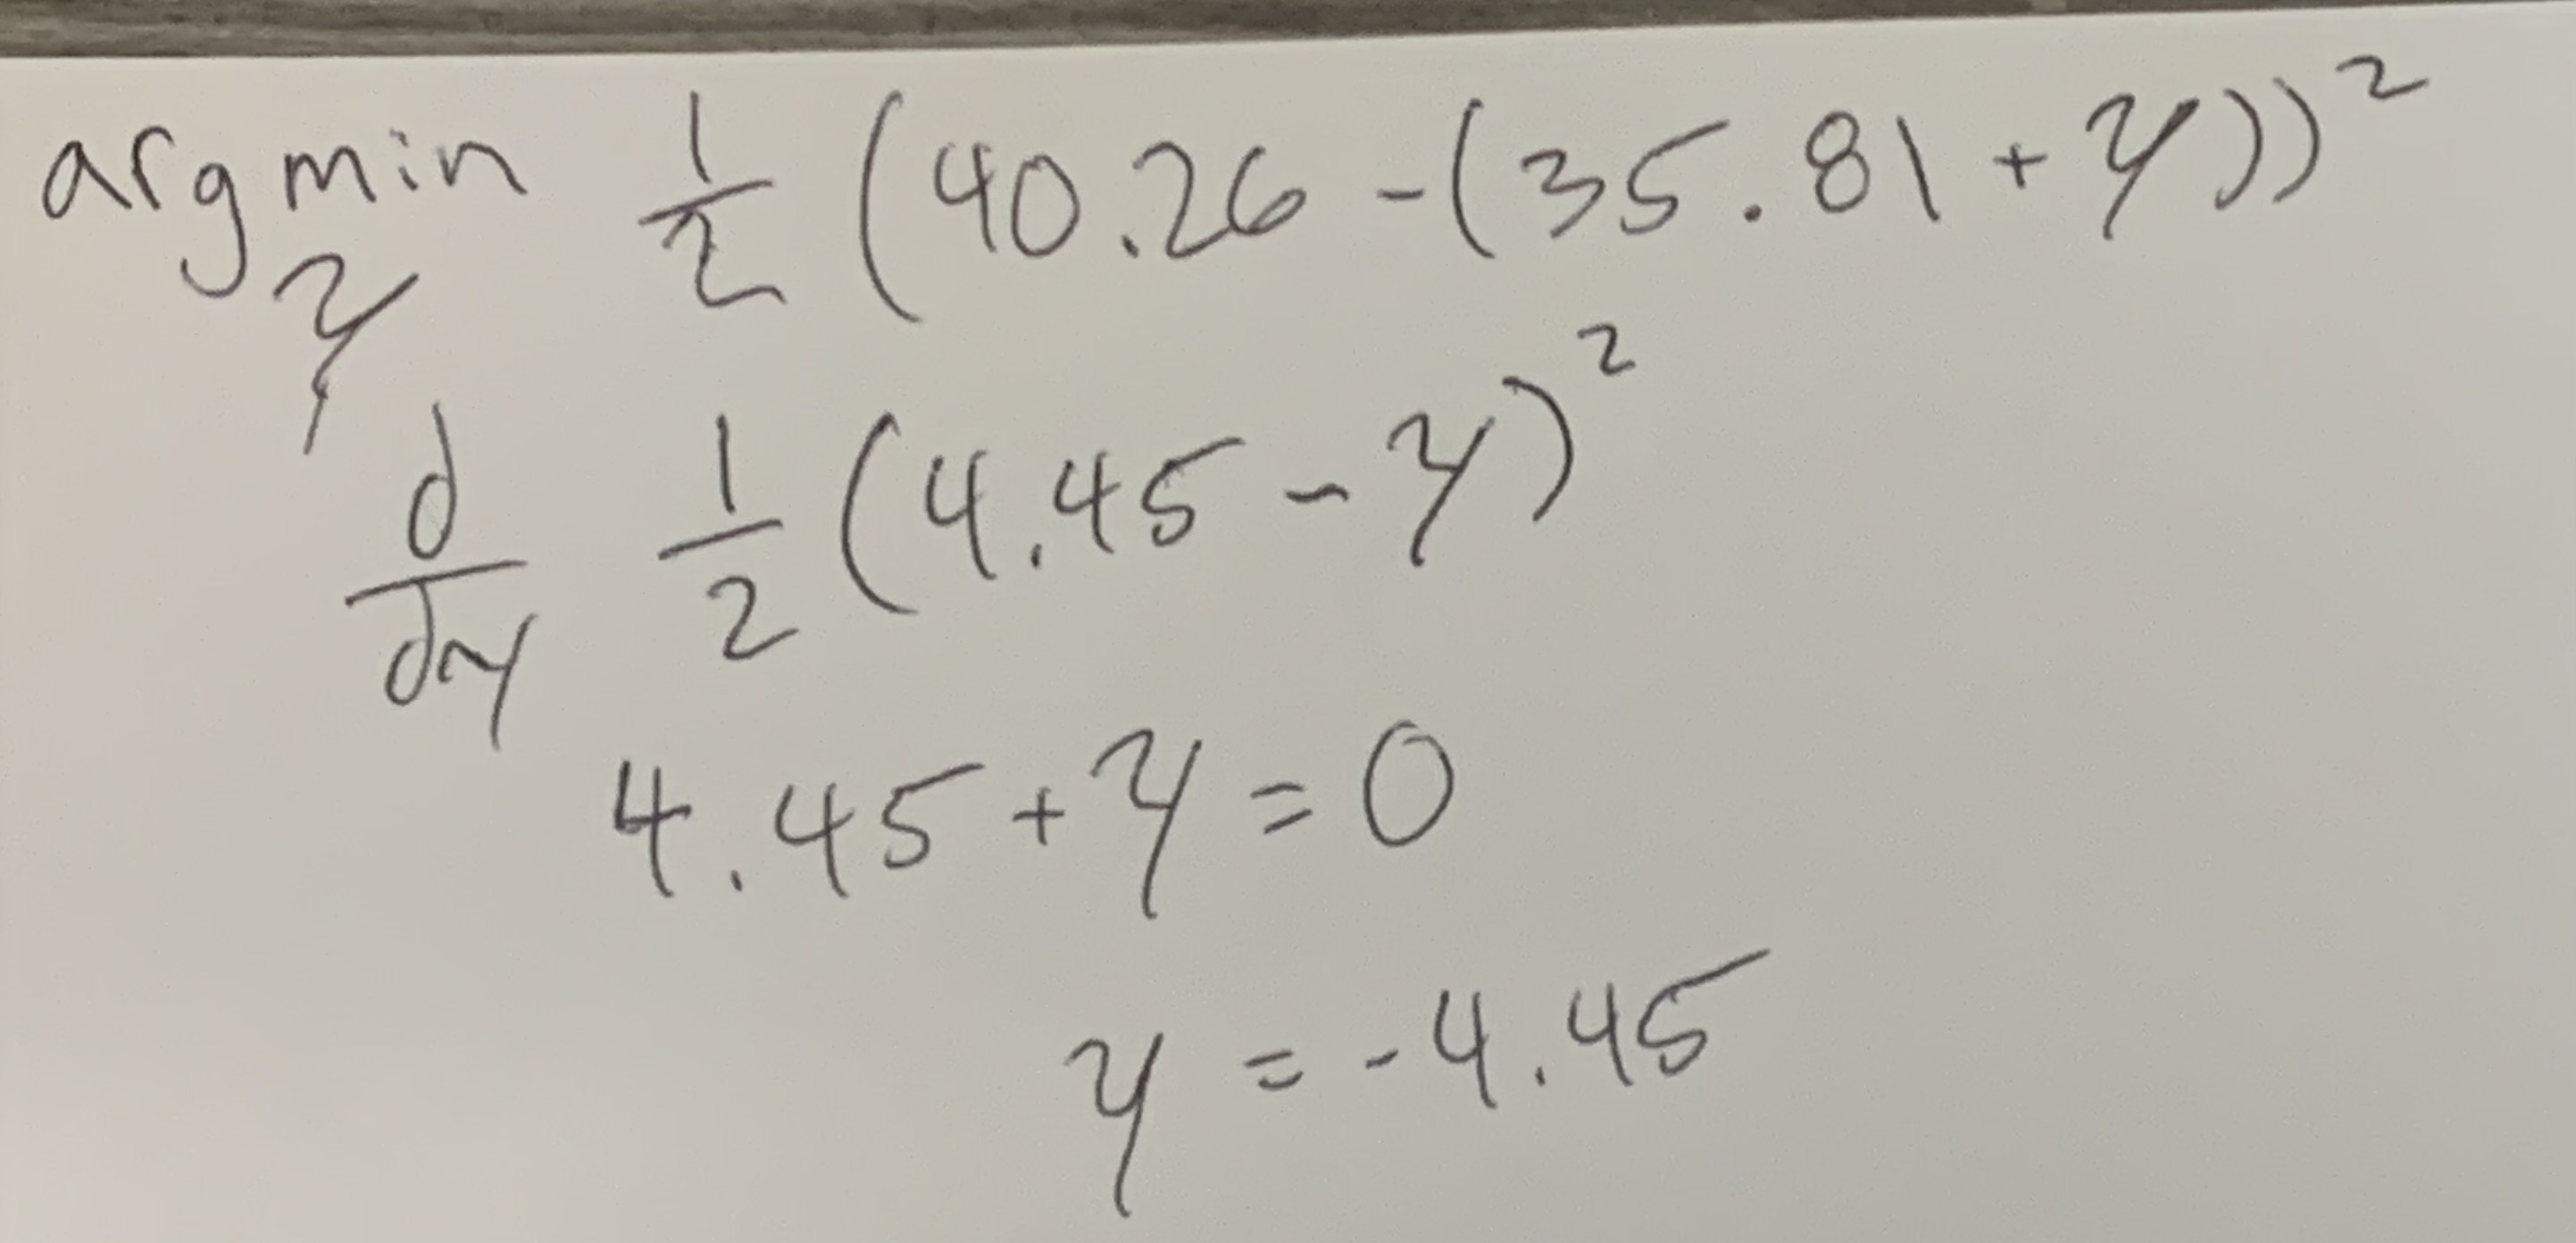 arg min 1/2 (40.26 - (35.81 + y))²
y
d/dy 1/2 (4.45 - y)²
4.45 + y = 0
y = -4.45